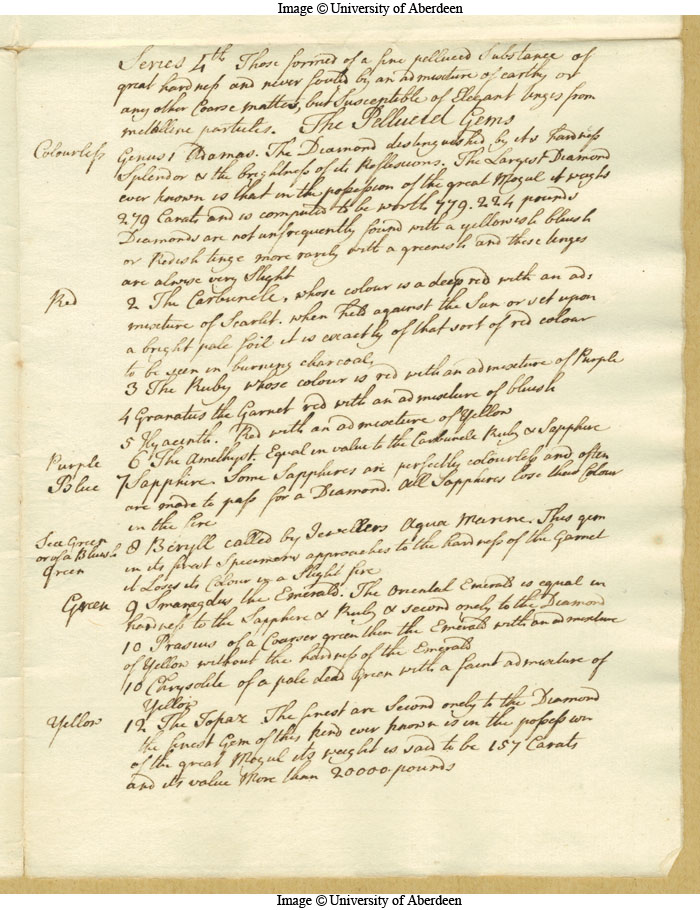 Image © University of Aberdeen
Series 4th Those formed of a fine pellucid Substance of
great hardness and never fouled by an admixture of earthy or
any other Coarse matter, but Susceptible of Elegant tinges from
metalline particles. The Pellucid Gems
Colourless Genus 1 Adamas. The Diamond destinguished by its hardness
Splendor & the brightness of its Reflexions. The Largest Diamond
ever known is that in the possession of the great Mogul it weighs
279 Carats and is computed to be worth 779.224 pounds
Diamonds are not unfrequently found with a yellowish bluish
or Redish tinge more rarely with a greenish and these tinges
are alwise very Slight
Red 2 The Carbuncle, whose colour is a deep red with an ad:
mixture of Scarlet. when held against the Sun or set upon
a bright pale foil it is exactly of that sort of red colour
to be seen in burning charcoal,
3 The Ruby whose colour is red with an admixture of Purple
4 Granatus the Garnet red with an admixture of bluish
5 Hyacinth. Red with an admixture of Yellow
Purple 6 The Amethyst Equal in value to the Carbuncle Ruby & Sapphire
Blue 7 Sapphire. Some Sapphires are perfectly colourless and often
are made to pass for a Diamond. All Sapphires lose their Colour
in the fire
Sea Green
or of a Bluish
Green
8 Beryll called by Jewellers Aqua Marine. This gem
in its finest Specimens approaches to the hardness of the Garnet
it Loses its Colour in a Slight fire
Green 9 Smaragdus the Emerald. The Oriental Emerald is equal in
hardness to the Sapphire & Ruby & second onely to the Diamond
10 Prasius of a Coarser green then the Emerald with an admixture
of Yellow without the hardness of the Emerald
10 Chrysolite of a pale dead green with a faint admixture of
Yellow
Yellow 12 The Topaz The finest are Second onely to the Diamond
the finest Gem of this kind ever known is in the possession
of the great Mogul its weight is said to be 157 Carats
and its value More than 20000 pounds
Image © University of Aberdeen